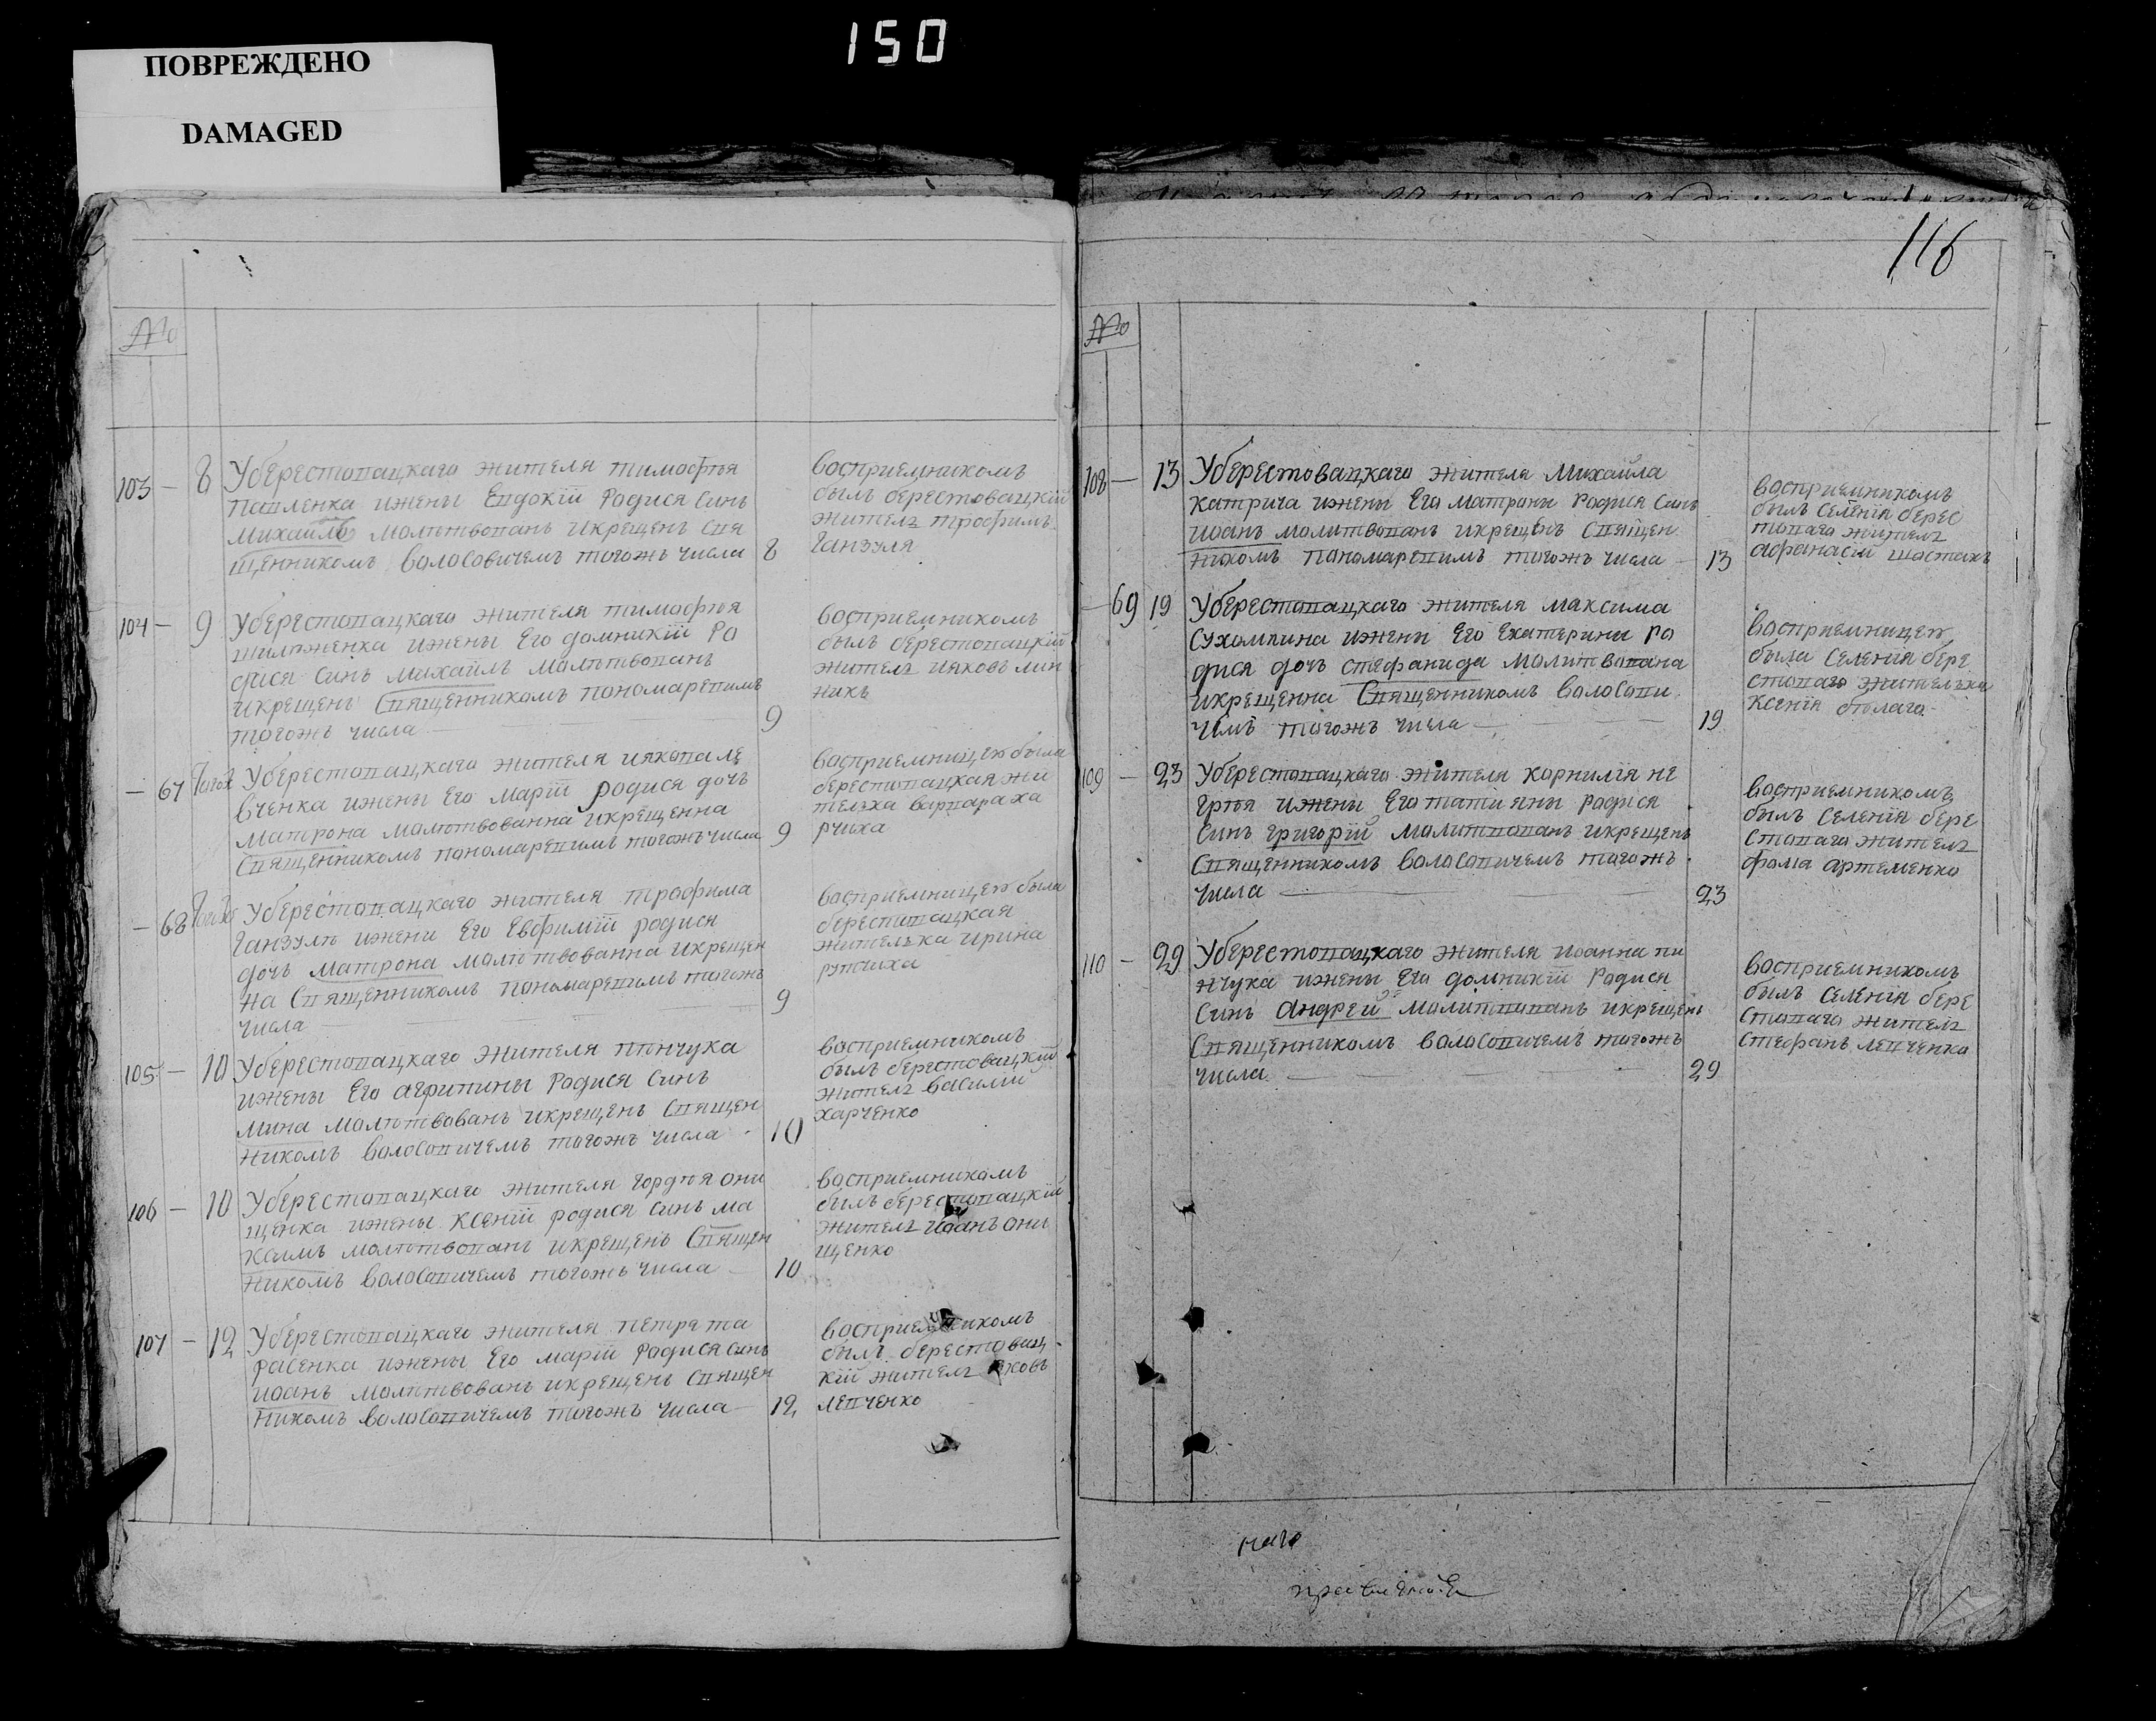 ПОВРЕЖДЕНО
DAMAGED
150
№
103 — 8 Уберестовацкаго жителя тимофѣя
павленка ижены Евдокіи Родися синъ
Михаилъ молитвованъ икрещенъ свя
щенникомъ волосовичемъ тогожъ числа 8
восприемникомъ
былъ берестовацкій
жителъ трофимъ
ганзуля
104 — 9 Уберестовацкаго жителя тимофѣя
ижены Его домникіи Ро
дися синъ михаилъ молитвованъ
икрещенъ Священникомъ пономаревимъ
тогожъ числа — 9
восприемникомъ
былъ берестовацкій
жителъ ияковъ мин
никъ
— 67 Уберестовацкаго жителя иякова ле
вченка ижены Его маріи родися дочъ
матрона молитвованна икрещенна
Священникомъ пономаревимъ тогожъ числа 9
восприемницею была
берестовацкая жи
телька варвара ха
рчиха
— 68 Уберестовацкаго жителя трофима
ганзулѣ ижени Его Евфиміи родися
дочъ матрона молитвованна икрещен
на Священникомъ пономаревимъ тогожъ
числа — 9
восприемницею была
берестовацкая
жителька ирина
105 — 10 Уберестовацкаго жителя пѣнчука
ижены Его агрипины родися синъ
мина молитвованъ икрещенъ Священ
никомъ волосовичемъ тогожъ числа 10
восприемникомъ
былъ берестовацкій
жителъ василий
харченко
106 — 10 Уберестовацкаго жителя гордѣя они
щенка ижены ксеніи родися синъ ма
ксимъ молитвованъ икрещенъ Священ
никомъ волосовичемъ тогожъ числа — 10
восприемникомъ
былъ берестовацкій
жителъ иоанъ они
щенко
107 — 12 Уберестовацкаго жителя петра та
расенка ижены Его маріи родися синъ
иоанъ молитвованъ икрещенъ Священ
никомъ волосовичемъ тогожъ числа — 12
восприемникомъ
былъ берестовац
кій жителъ яковъ
левченко
116
№
108 — 13 Уберестовацкаго жителя михаила
катрича ижены Его матрони родися синъ
иоанъ молитвованъ икрещенъ Священ
никомъ пономаревимъ тогожъ числа — 13
восприемникомъ
былъ селенія берес
товаго жителъ
афанасій шостакъ
— 69 19 Уберестовацкаго жителя максима
сухомлина ижени Его Екатерини ро
дися дочъ стефанида молитвована
икрещенна Священникомъ волосови
чемъ тогожъ числа — 19
восприемницею
была селенія бере
стоваго жителька
ксенія бѣлаго
109 — 23 Уберестовацкаго жителя корнилія не
ижены Его татіяны родися
синъ григорій молитвованъ икрещенъ
Священникомъ волосовичемъ тогожъ
числа — 23
восприемникомъ
былъ селенія бере
стоваго жителъ
фома артеменко
110 — 29 Уберестовацкаго жителя иоанна пи
нчука ижены Его домникіи родися
синъ андрей молитвованъ икрещенъ
Священникомъ волосовичемъ тогожъ
числа — 29
восприемникомъ
былъ селенія бере
стоваго жителъ
стефанъ левченко